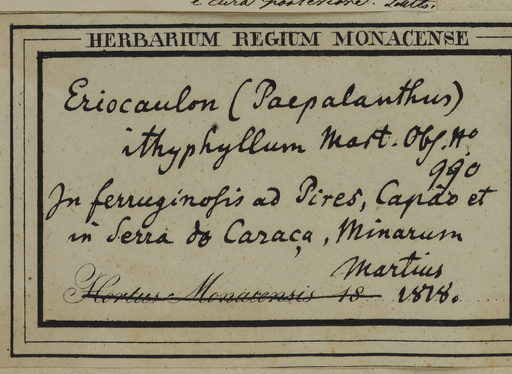 e cura posteriore.
HERBARIUM REGIUM MONACENSE
Eriocaulon (Paepalanthus)
ithyphyllum Mart. Obs. No
990
In ferruginosis ad Pires, Capão et
in Serra do Caraça, Minarum
Martius
Hortus Monacensis 18 1818.